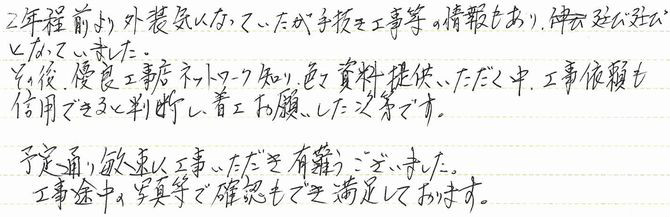 2年程前より外装気になっていたが手抜き工事等の情報もあり、延び延び
となっていました。
その後、優良工事店ネットワーク知り、色々資料提供いただく中、工事依頼も
信用できると判断し、着工お願いした次第です。
予定通り敏速に工事いただき有難うございました。
工事途中の写真等で確認もでき満足しております。